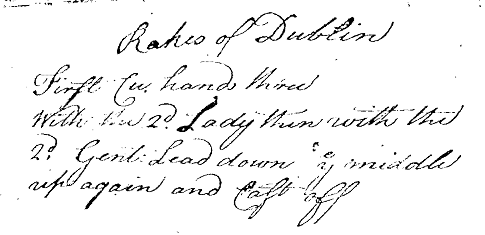 Rakes of Dublin
First Cu. hand three
With the 2d. Lady then with the
2d. Gent: Lead down ye middle
up again and Cast off